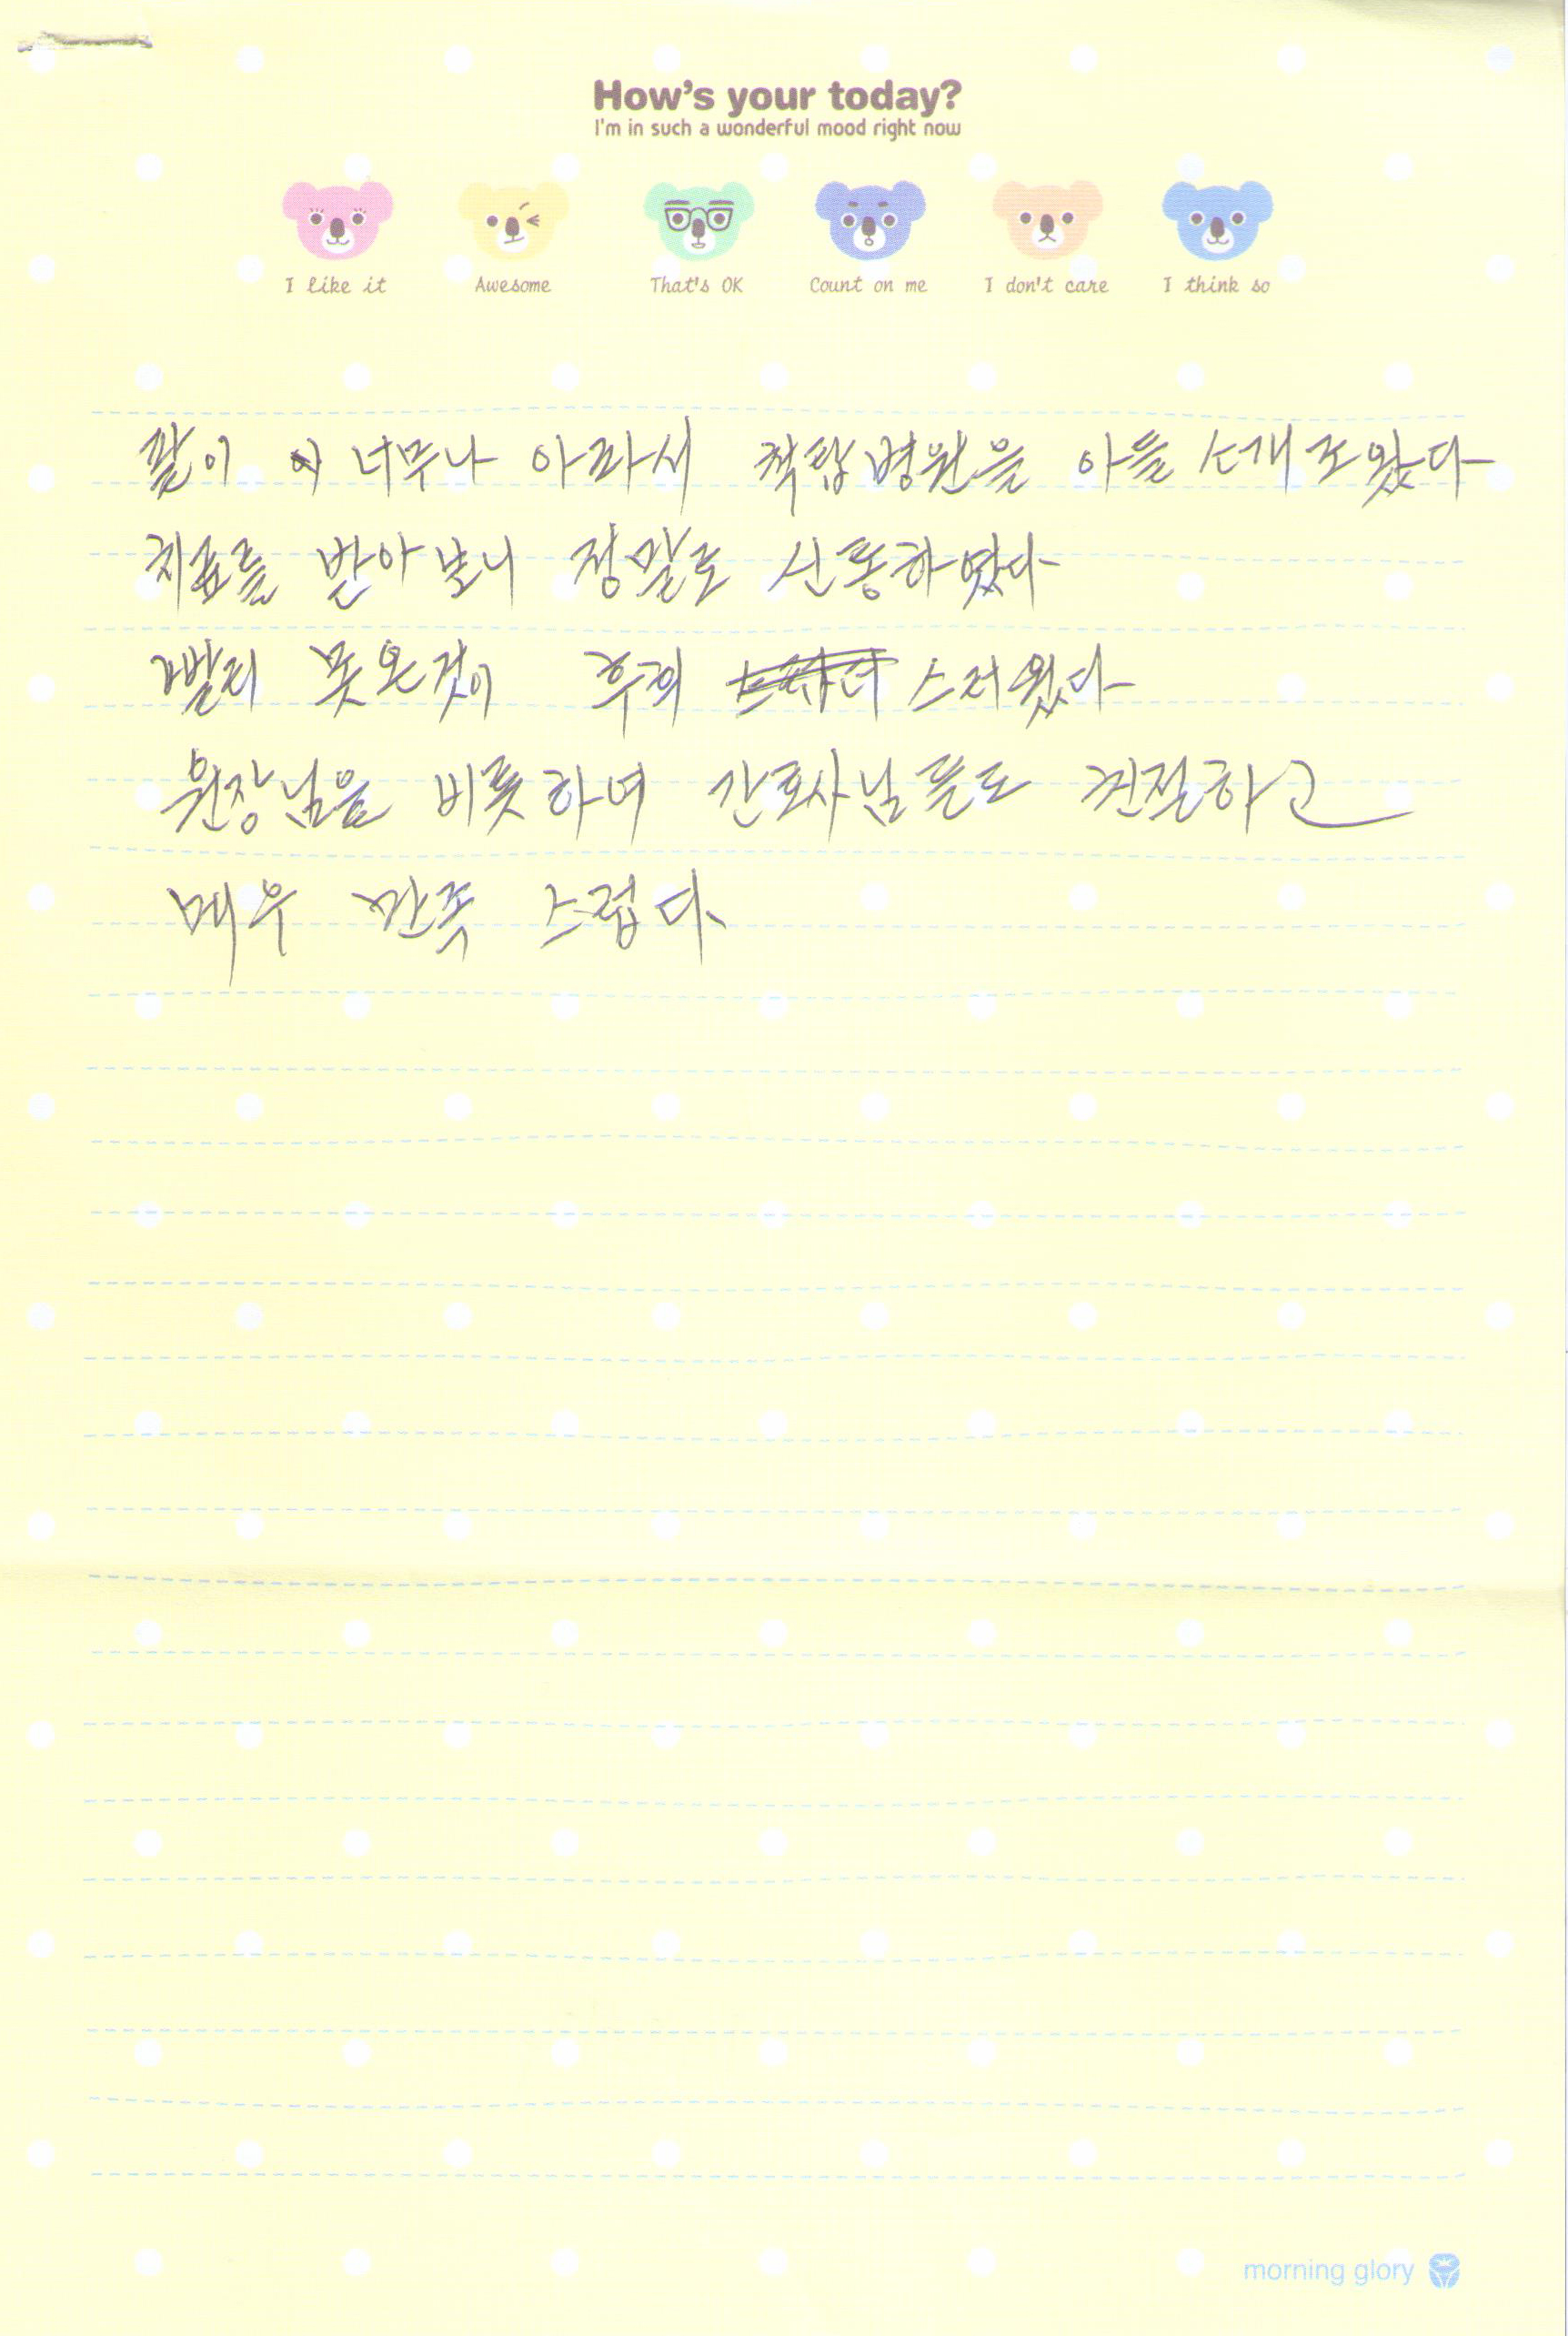 How's your today?
I'm in such a wonderful mood right now
I like it Awesome That's OK Count on me I don't care I think so
팔이 너무나 아파서 척탑병원을 아들 소개로왔다
치료를 받아보니 정말로 신통하였다
빨리 못온것이 후회 스러웠다
원장님을 비롯하여 간호사님들도 친절하고
매우 만족 스럽다.
morning glory